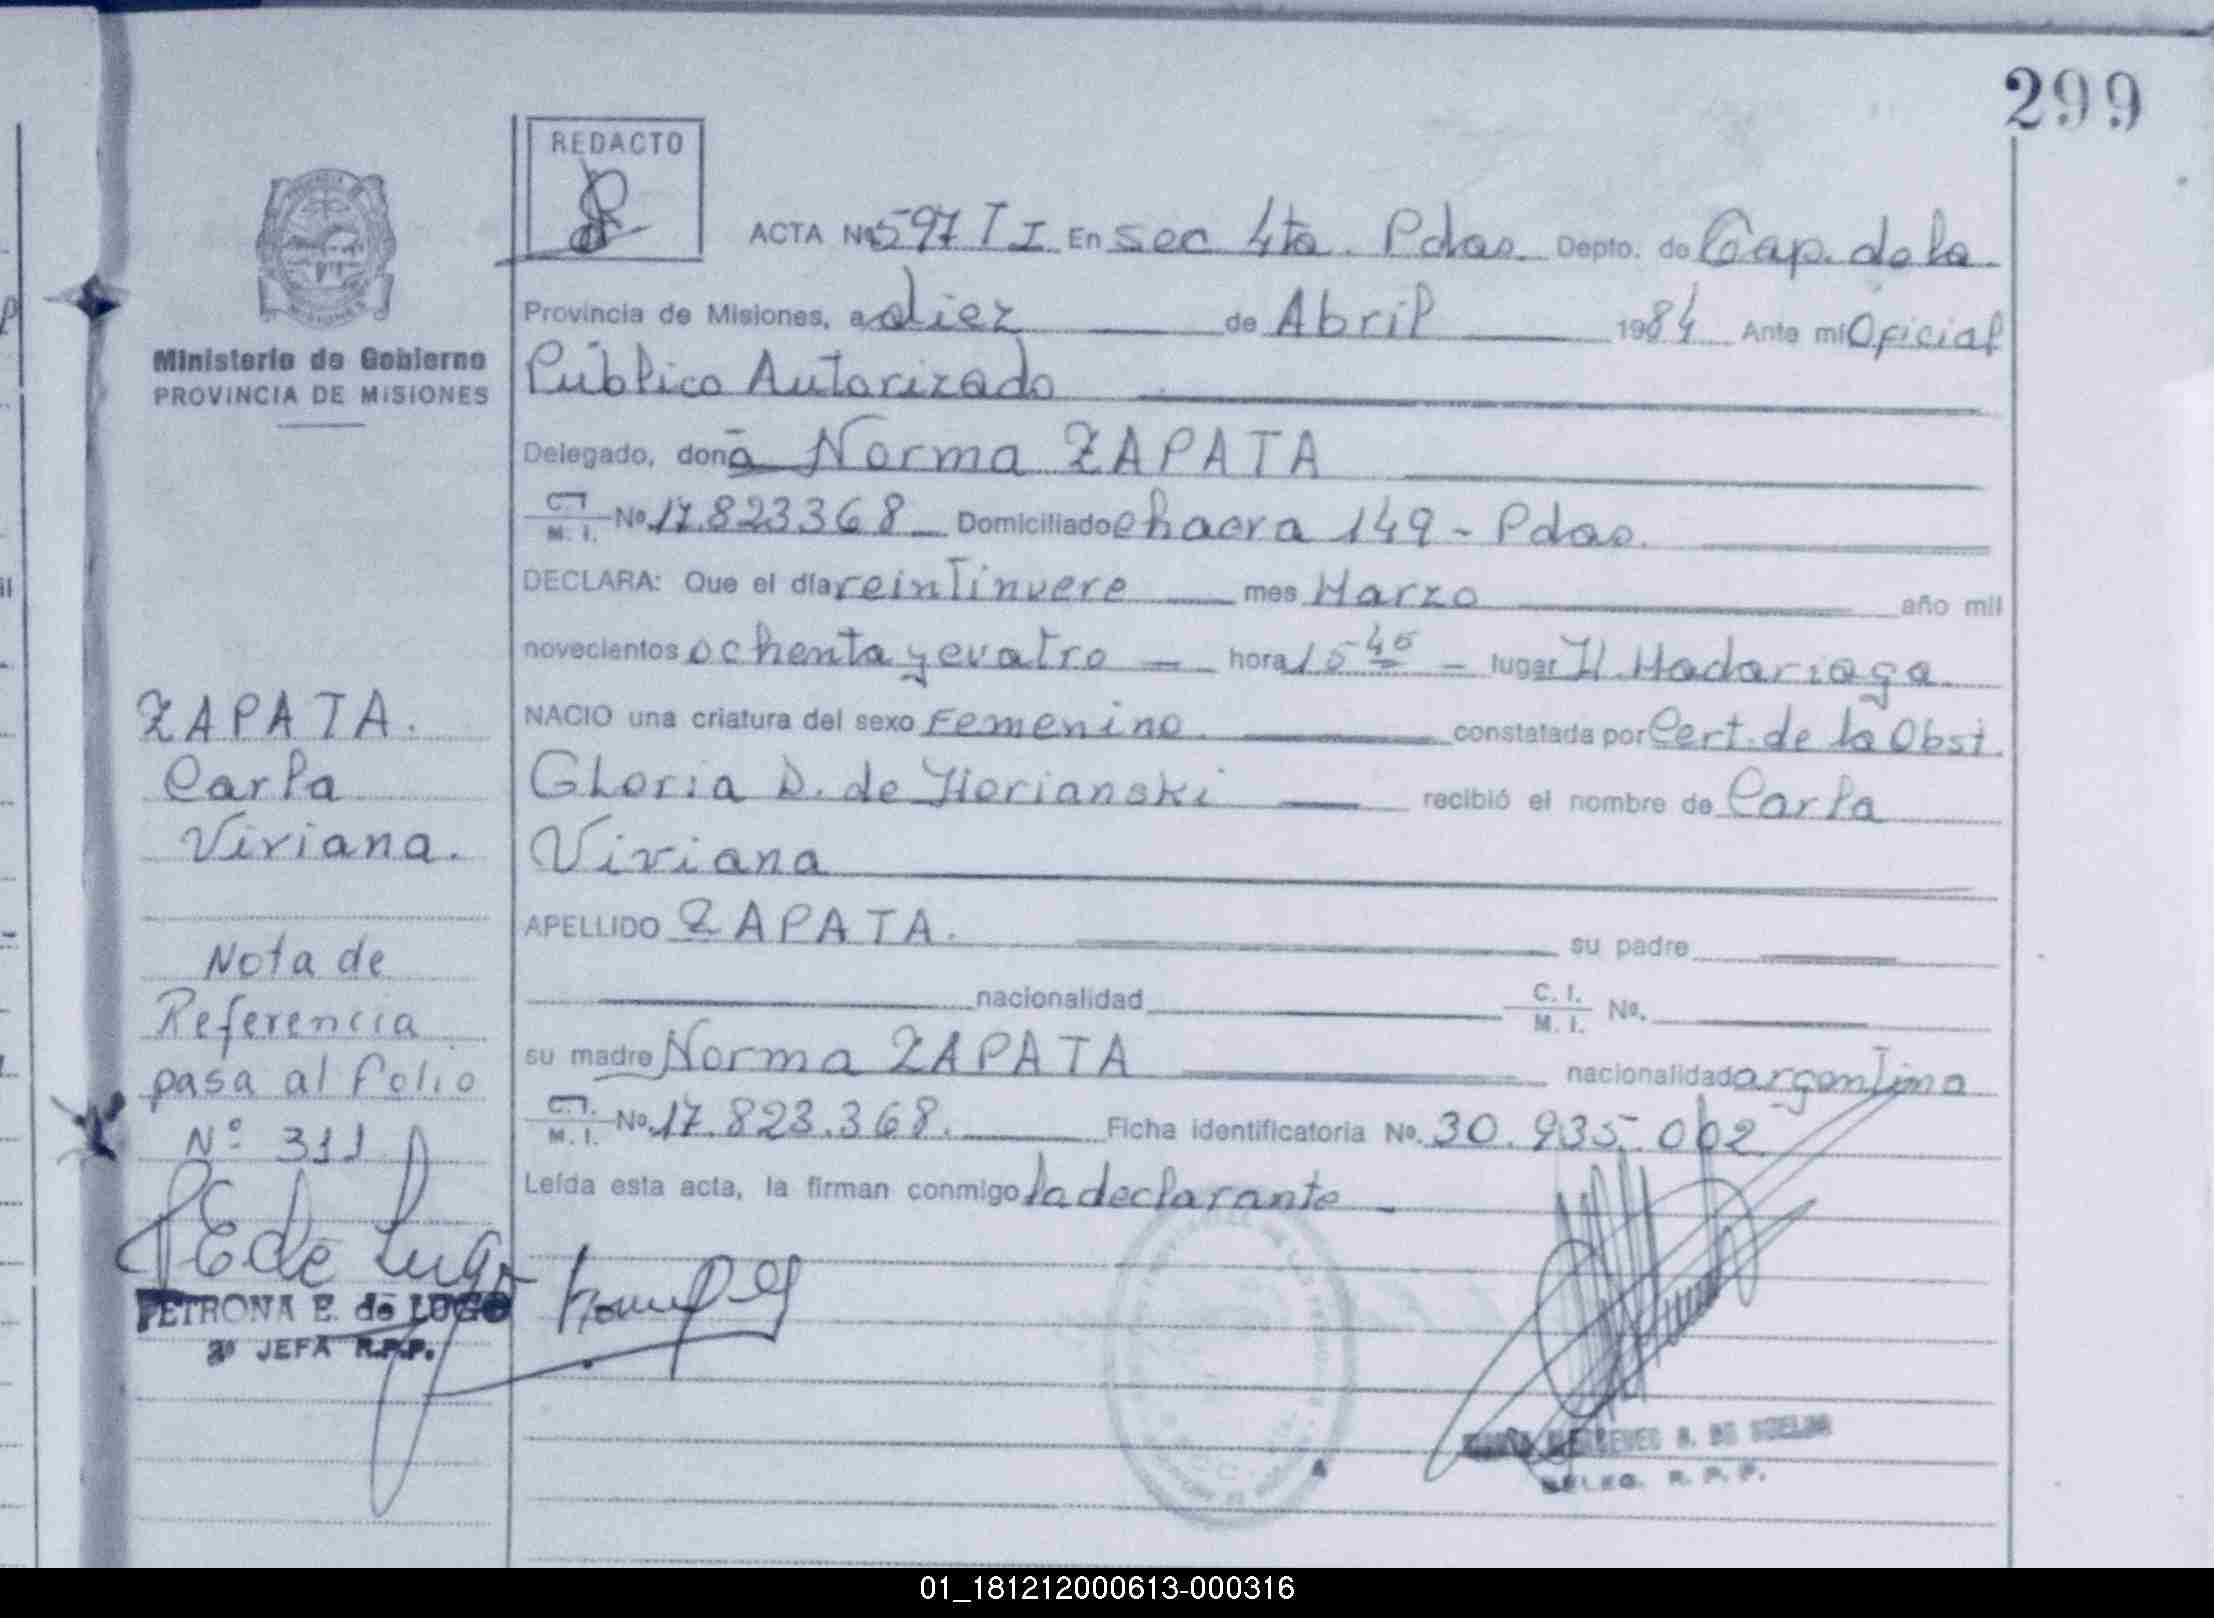 299
REDACTO
ACTA Nº 597 T I En sec 4ta. Pdas. Depto. de Cap. de la
Provincia de Misiones, a diez de Abril 1984 Ante mi Oficial
Público Autorizado
Ministerio de Gobierno
PROVINCIA DE MISIONES
Delegado, doña Norma ZAPATA
C.I. M. I. Nº 17.823368 Domiciliado chacra 149 - Pdas.
DECLARA: Que el día veintinueve mes Marzo año mil
novecientos ochenta y cuatro hora 15 45 lugar H. Madariaga
NACIO una criatura del sexo Femenino. constatada por Cert. de la Obst.
Gloria D. de recibió el nombre de Carla
Viviana
ZAPATA.
Carla
Viviana.
APELLIDO ZAPATA. su padre
nacionalidad C. I. M. I. Nº.
su madre Norma ZAPATA nacionalidad argentina
C.I. M. I. Nº. 17.823.368. Ficha identificatoria Nº. 30.935.002
Leída esta acta, la firman conmigo la declarante
Nota de
Referencia
pasa al folio
Nº 311
PEde Lugo
PETRONA E. de LUGO
JEFA R.P.P.
DELEG. R. P. P.
01_181212000613-000316